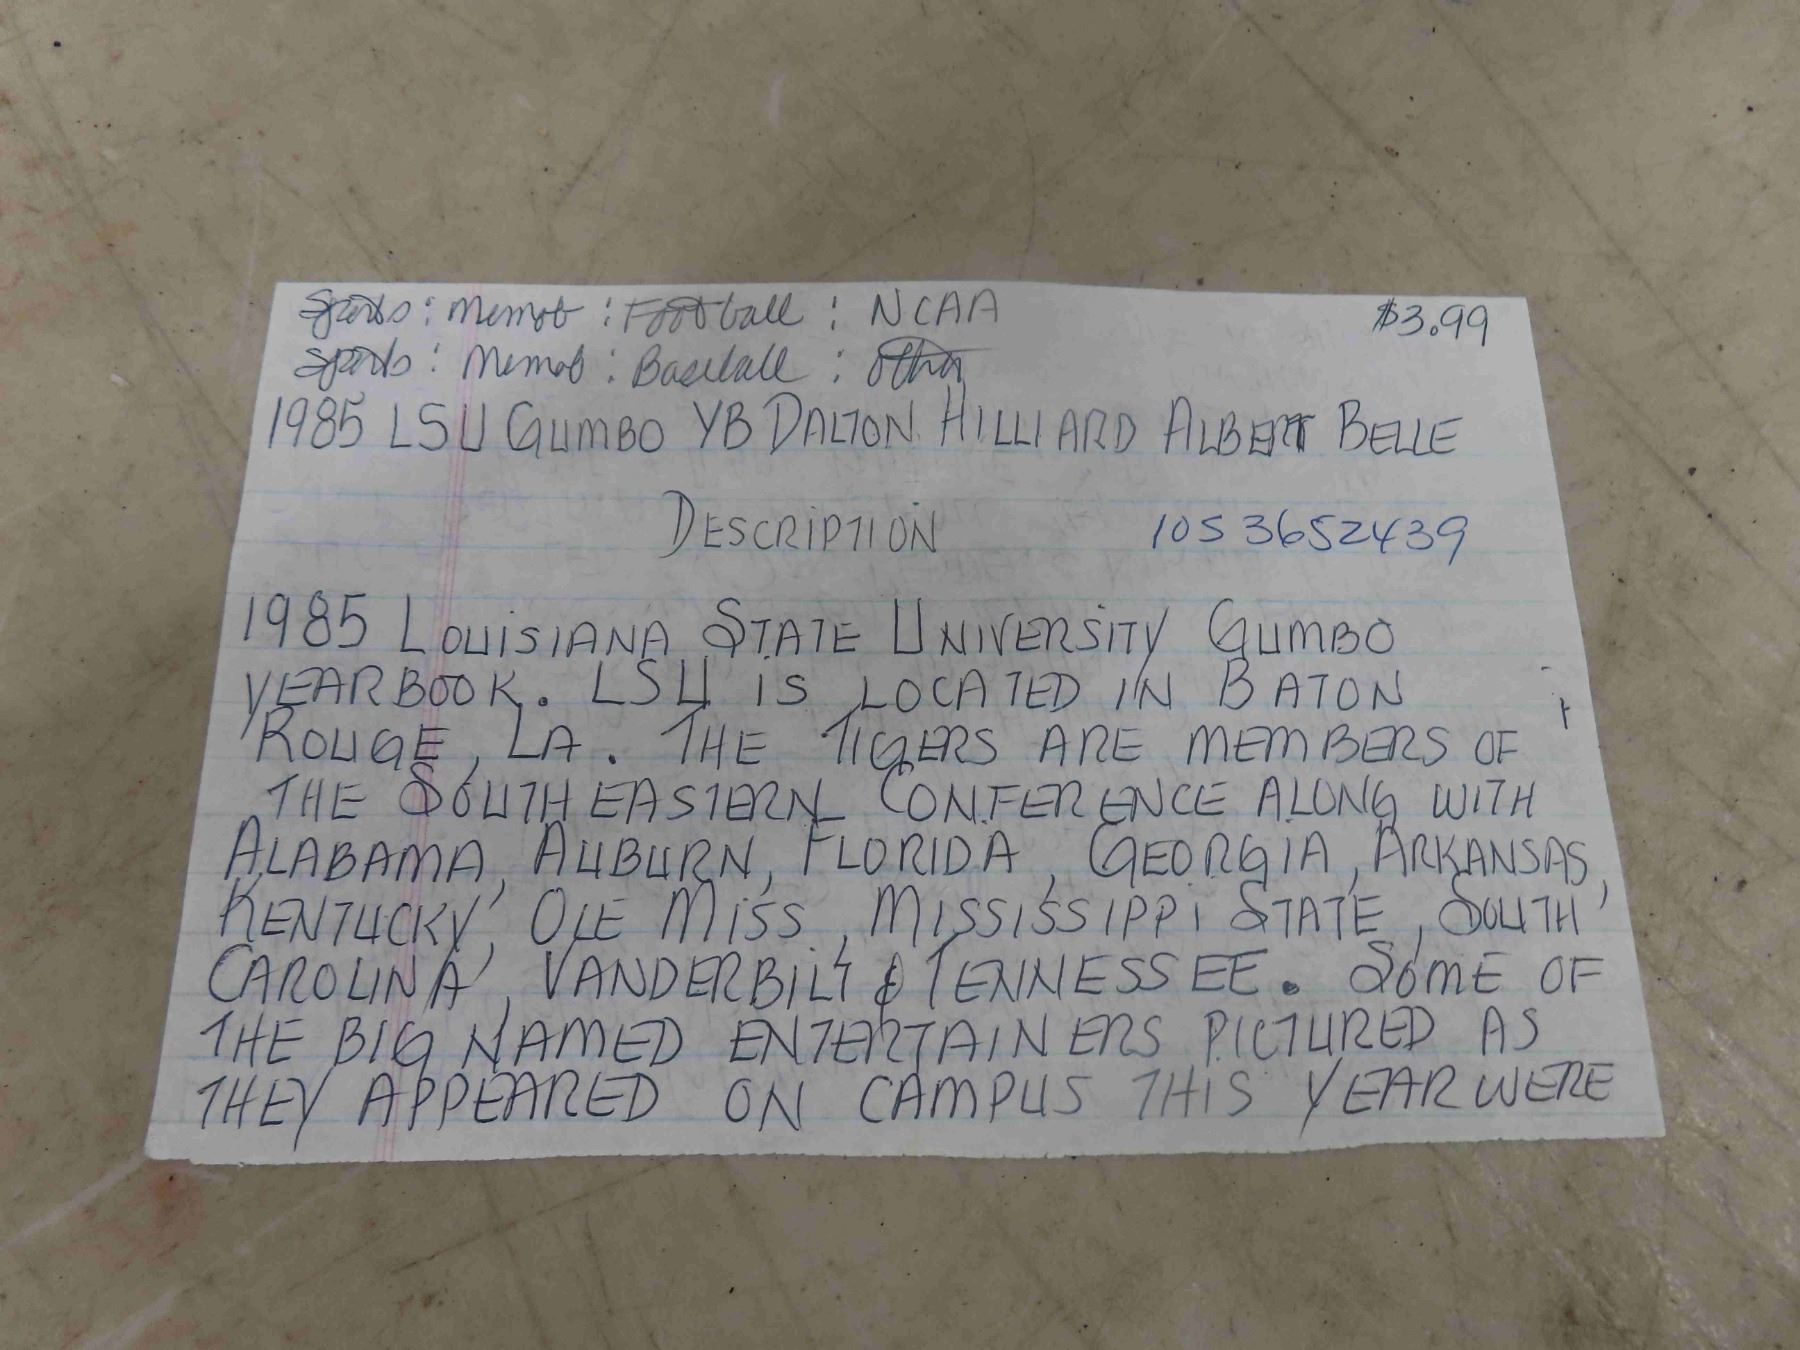 Sports: Memob: Football: NCAA $3.99
Sports: Memob: Baseball: Other
1985 LSU GUMBO YB DALTON HILLIARD ALBERT BELLE
DESCRIPTION 1053652439
1985 LOUISIANA STATE UNIVERSITY GUMBO
YEARBOOK. LSU IS LOCATED IN BATON
ROUGE, LA. THE TIGERS ARE MEMBERS OF
THE SOUTHEASTERN CONFERENCE ALONG WITH
ALABAMA, AUBURN, FLORIDA, GEORGIA, ARKANSAS,
KENTUCKY, OLE MISS, MISSISSIPPI STATE, SOUTH
CAROLINA, VANDERBILT & TENNESSEE. SOME OF
THE BIG NAMED ENTERTAINERS PICTURED AS
THEY APPEARED ON CAMPUS THIS YEAR WERE